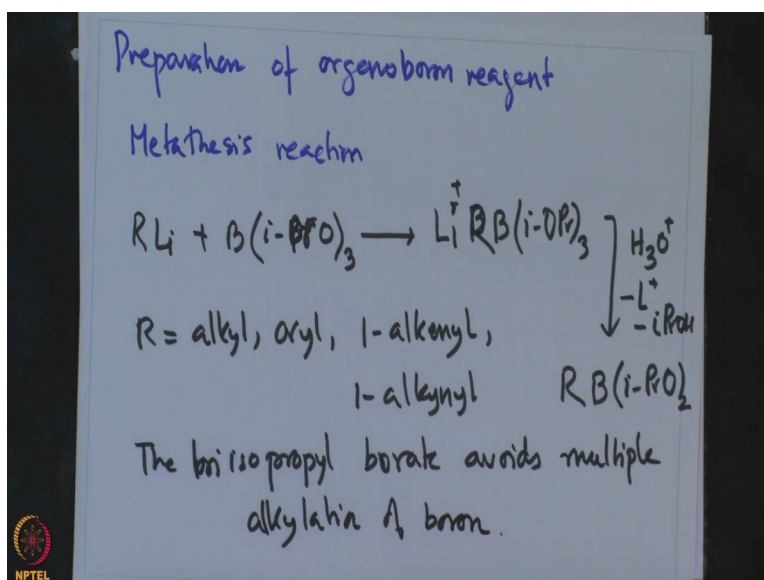 Preparation of organoboron reagent
Metathesis reaction
RLi + B(i-PrO)₃ → Li⁺ RB(i-OPr)₃
H₃O⁺
-Li⁺
-iPrOH
R = alkyl, aryl, 1-alkenyl,
1-alkynyl RB(i-PrO)₂
The triisopropyl borate avoids multiple
alkylation of boron.
NPTEL